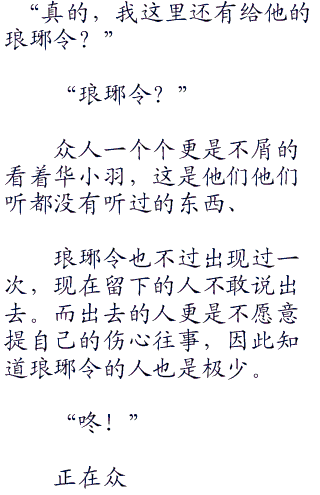 “真的，我这里还有给他的
琅琊令？”
“琅琊令？”
众人一个个更是不屑的
看着华小羽，这是他们他们
听都没有听过的东西、
琅琊令也不过出现过一
次，现在留下的人不敢说出
去。而出去的人更是不愿意
提自己的伤心往事，因此知
道琅琊令的人也是极少。
“咚！”
正在众